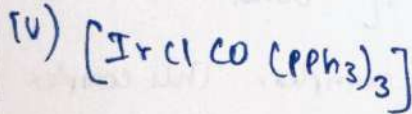 (v) [Ir Cl CO (PPh3)3]